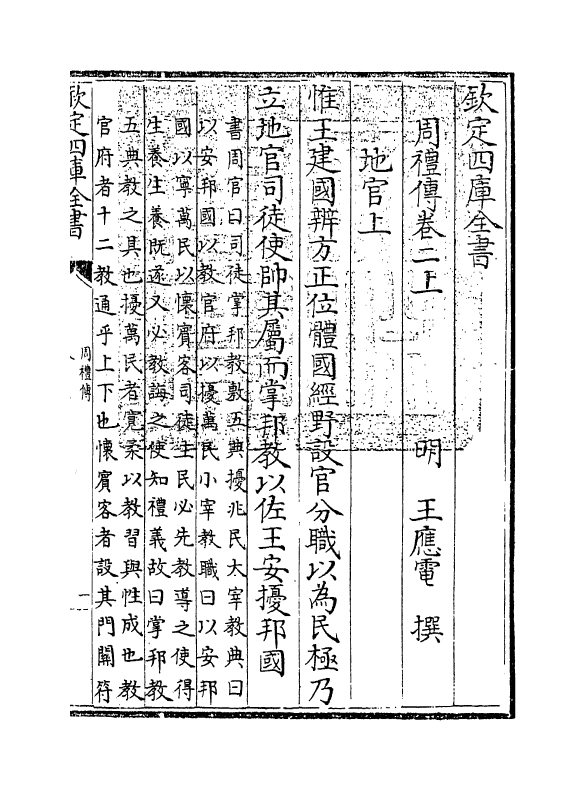 欽定四庫全書
周禮傳卷二上
明 王應電 撰
地官上
惟王建國辨方正位體國經野設官分職以為民極乃
立地官司徒使帥其屬而掌邦教以佐王安擾邦國
書周官曰司徒掌邦教敷五典擾兆民大宰教典曰
以安邦國以教官府以擾萬民小宰教職曰以安邦
國以寧萬民以懷賓客司徒主民必先教導之使得
生養生養既遂又必教誨之使知禮義故曰掌邦教
五典教之具也擾萬民者寛柔以教習與性成也教
官府者十二教通乎上下也懷賓客者設其門關符
欽定四庫全書
周禮傳
一